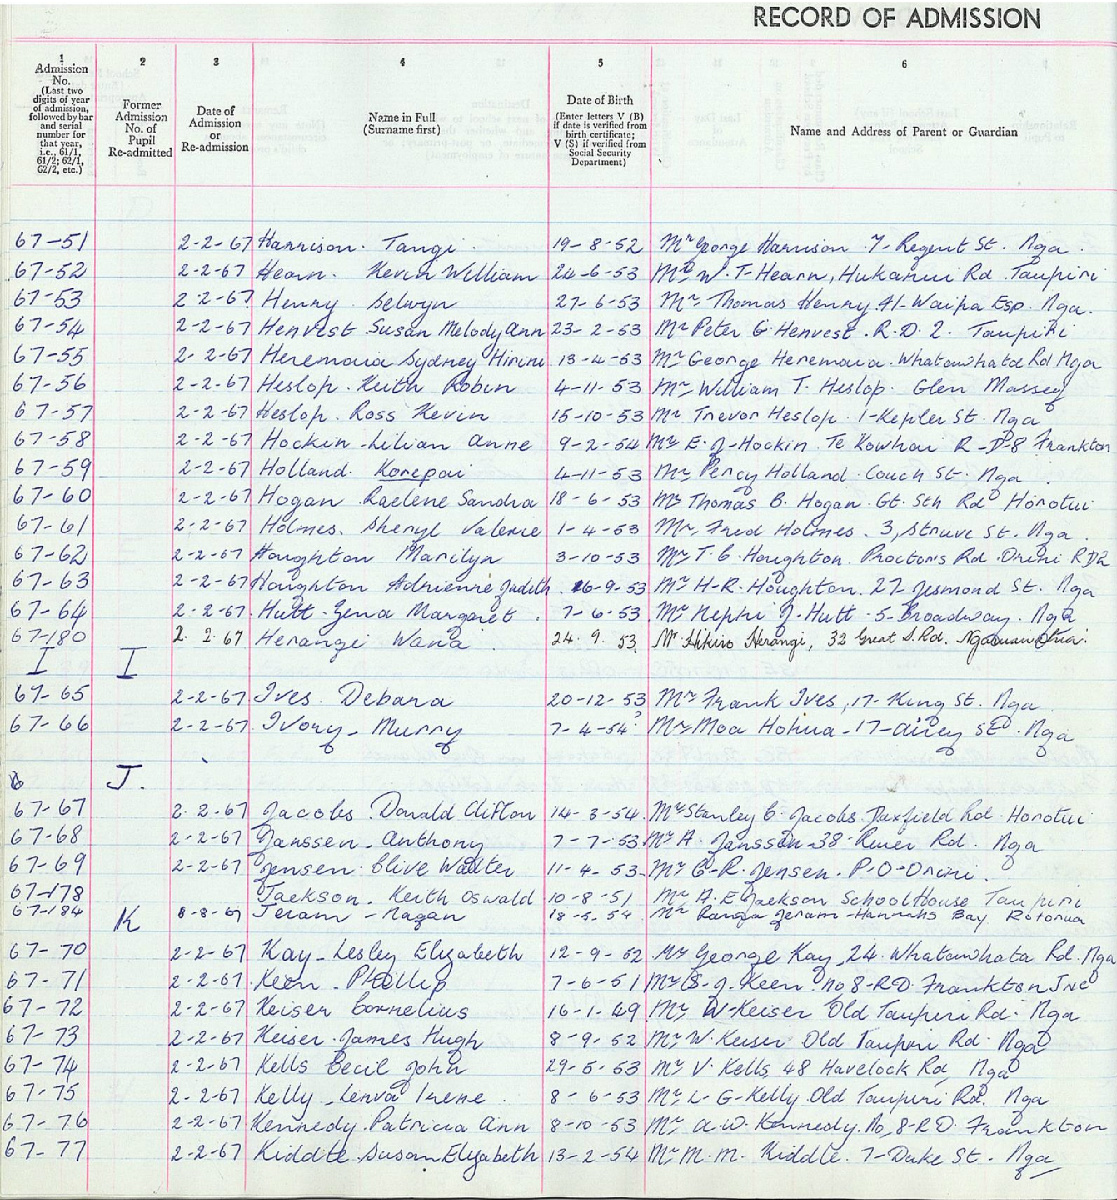 RECORD OF ADMISSION
1 2 3 4 5 6
Admission No. (Last two digits of year of admission, followed by bar and serial number for that year, i.e., 61/1, 61/2; 62/1, 62/2, etc.)
Former Admission No. of Pupil Re-admitted
Date of Admission or Re-admission
Name in Full (Surname first)
Date of Birth (Enter letters V (B) if date is verified from birth certificate; V (S) if verified from Social Security Department)
Name and Address of Parent or Guardian
67-51 2-2-67 Harrison. Tangi. 19-8-52 Mr George Harrison 7-Regent St. Nga.
67-52 2-2-67 Hearn. Kevin William 24-6-53 Mr W. T-Hearn, Hukanui Rd. Taupiri
67-53 2-2-67 Henry. Selwyn 27-6-53 Mr Thomas Henry 41-Waipa Esp. Nga.
67-54 2-2-67 Henvest Susan Melody Ann 23-2-53 Mr Peter G Henvest. R.D. 2. Taupiri
67-55 2-2-67 Heremaia Sydney Hirini 13-4-53 Mr George Heremaia. Whatawhata Rd Nga
67-56 2-2-67 Heslop. Keith Robin 4-11-53 Mr William T. Heslop. Glen Massey
67-57 2-2-67 Heslop. Ross Kevin 15-10-53 Mr Trevor Heslop. 1-Kepler St. Nga
67-58 2-2-67 Hockin-Lilian Anne 9-2-54 Mr E. J-Hockin. Te Kowhai R-D-8 Frankton
67-59 2-2-67 Holland. Korepai 4-11-53 Mr Percy Holland. Couch St. Nga.
67-60 2-2-67 Hogan. Raelene Sandra 18-6-53 Mr Thomas B. Hogan. Gt. Sth Rd Horotiu
67-61 2-2-67 Holmes. Sheryl Valerie 1-4-53 Mr. Fred Holmes. 3, Struve St. Nga.
67-62 2-2-67 Houghton Marilyn 3-10-53 Mr T G. Houghton. Proctors Rd. Orini RD2
67-63 2-2-67 Houghton Adrienne Judith. 16-9-53 Mr H-R. Houghton. 27 Jesmond St. Nga
67-64 2-2-67 Hutt-Zena Margaret. 7-6-53 Mr Nephi J. Hutt-5-Broadway. Nga
67-180 2.2.67 Herangi Wana 24.9.53. Mr Hikiro Herangi, 32 Great S.Rd. Ngaruawahia.
I I
67-65 2-2-67 Ives. Debara 20-12-53 Mr Frank Ives, 17-King St. Nga
67-66 2-2-67 Ivory-Murry 7-4-54? Mr Moa Hohua-17-Airey St. Nga
J.
67-67 2-2-67 Jacobs. Donald Clifton 14-3-54. Mr Stanley C. Jacobs. Rd. Horotiu
67-68 2-2-67 Janssen-Anthony 7-7-53 Mr A. Janssen-38-River Rd. Nga
67-69 2-2-67 Jensen. Clive Walter 11-4-53- Mr C-R. Jensen. P-O-Orini.
67-178 Jackson. Keith Oswald 10-8-51 Mr A. E Jackson School House Taupiri
67-184 8-8-67 Jeram-Magan 18-5-54 Mr Ranga Jeram-Hannahs Bay. Rotorua
K
67-70 2-2-67 Kay-Lesley Elizabeth 12-9-52 Mr George Kay, 24. Whatawhata Rd. Nga
67-71 2-2-67 Keen. Phillip 7-6-51 Mr S-J. Keen. No 8-RD. Frankton Jnc
67-72 2-2-67 Keiser Cornelius 16-1-49 Mr W-Keiser Old Taupiri Rd. Nga
67-73 2-2-67 Keiser. James Hugh 8-9-52 Mr W. Keiser Old Taupiri Rd. Nga
67-74 2-2-67 Kells Cecil John 29-5-53 Mr V. Kells 48 Havelock Rd, Nga
67-75 2-2-67 Kelly-Lenva Irene. 8-6-53 Mr L-G-Kelly. Old Taupiri Rd. Nga
67-76 2-2-67 Kennedy. Patricia Ann 8-10-53 Mr A. W. Kennedy. No, 8-R.D. Frankton
67-77 2-2-67 Kiddle. Susan Elizabeth 13-2-54 Mr M. M. Kiddle. 7-Duke St. Nga